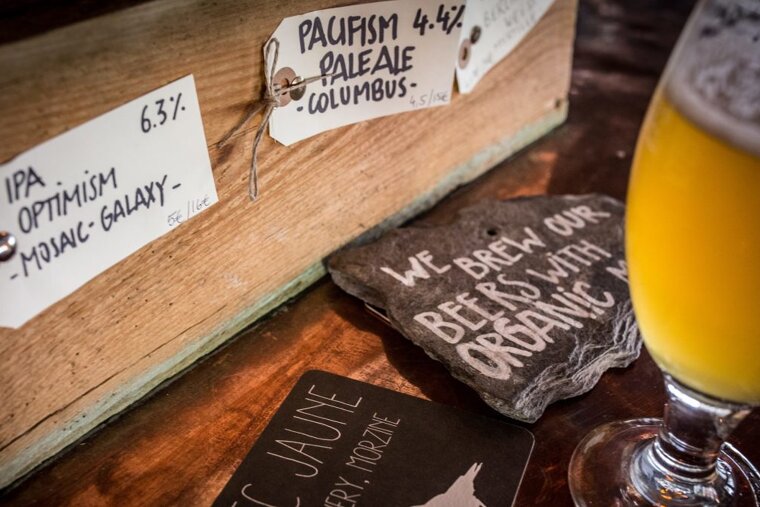 6.3%
IPA
OPTIMISM
-MOSAIC-GALAXY-
5€/16€
PACIFISM 4.4%
PALE ALE
-COLUMBUS-
4.5/15€
WE BREW OUR
BEERS WITH
ORGANIC M
C JAUNE
ERY, MORZINE